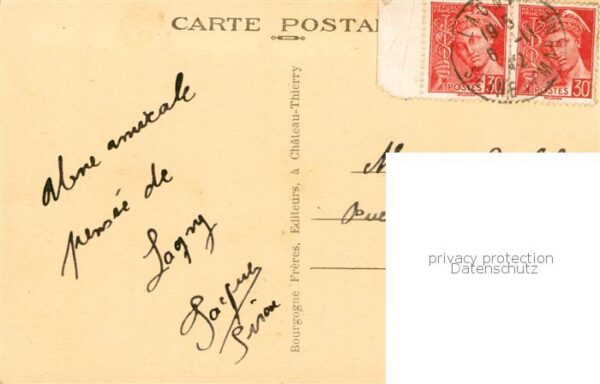 CARTE POSTAL
POSTES 30
POSTES 30
Une amicale
pensée de
Lagny
Jacques
Bourgogne Frères, Editeurs, à Château-Thierry
privacy protection
Datenschutz